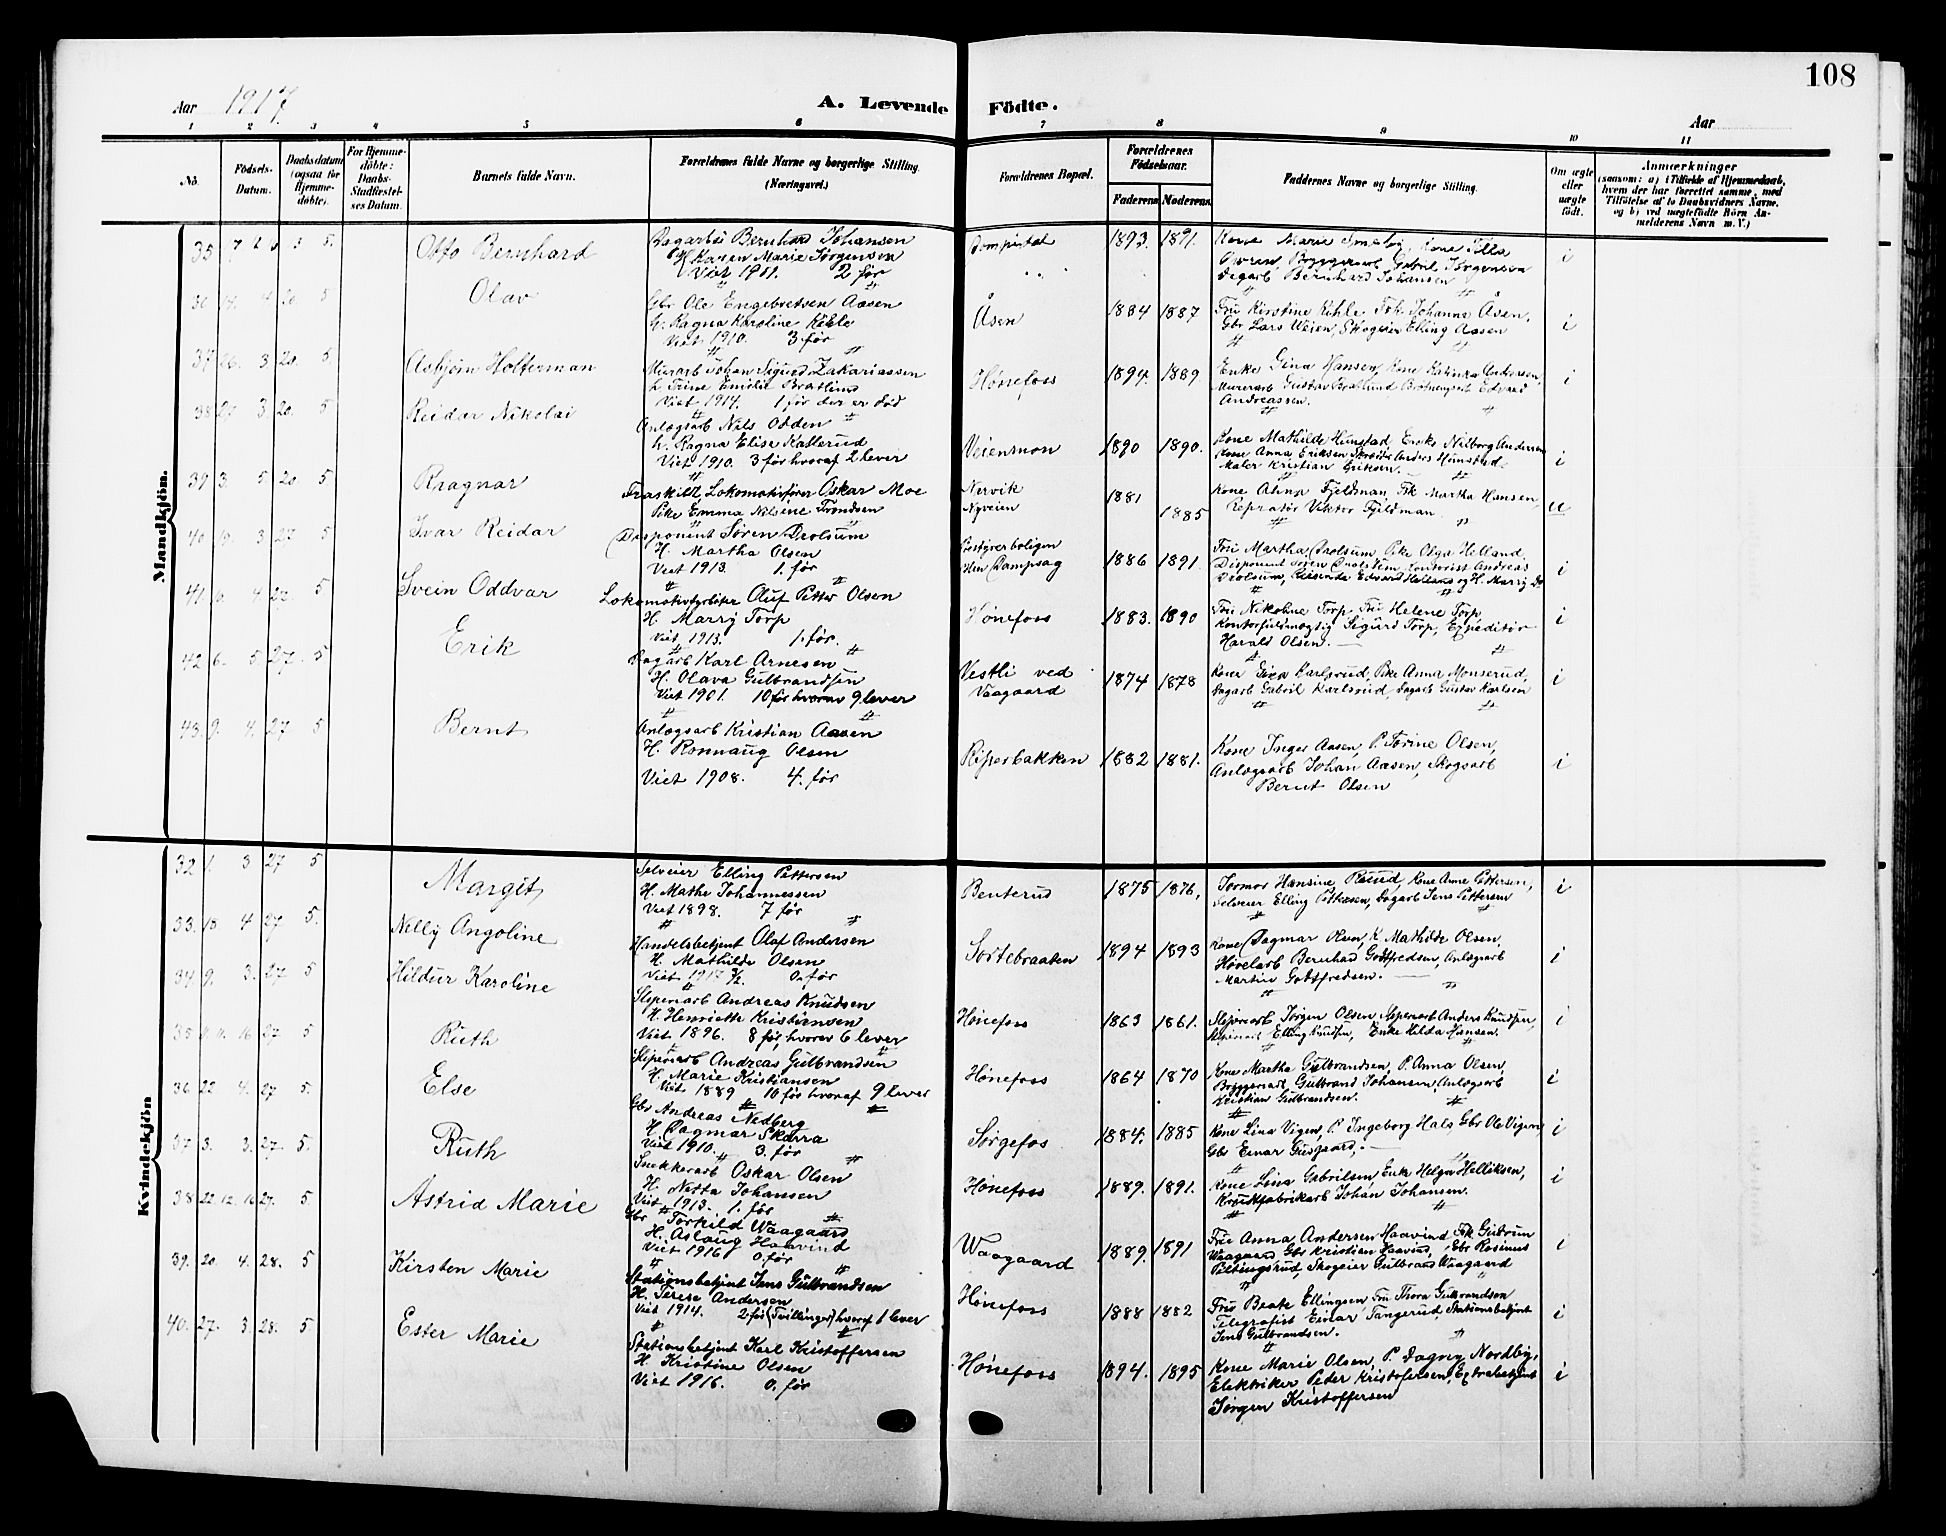 108
Aar 1917
A. Levende Födte.
Aar
1 2 3 4 5 6 7 8 9 10 11
No.
Födsels-Datum.
Daabsdatum (ogsaa for Hjemme-döbte).
For Hjemme-döbte: Daabs-Stadfæstel-ses Datum.
Barnets fulde Navn.
Forældrenes fulde Navne og borgerlige Stilling (Næringsvei.)
Forældrenes Bopæl.
Forældrenes Födselsaar.
Faderens Moderens
Faddernes Navne og borgerlige Stilling.
Om ægte eller uægte födt.
Anmærkninger
(saasom: a) i Tilfælde af Hjemmedaab, hvem der har forrettet samme, med Tilföielse af to Daabsvidners Navne, og b) ved uægtefödte Börn An-melderens Navn m. V.)
Mandkjön.
35 5. Otto Bernhard
Bernhard Johansen
H. Karen Marie Jørgensen
Viet 1911. 2 før
1893. 1891.
Kone Marie
Bryggeriarb Gabriel Jørgensen
Dagarb Bernhard Johansen
i
4 20 5 Olav
Gbr Ole Engebretsen Aasen
H. Ragna Karoline Kihle
Viet 1910. 3 før
Åsen
1884 1887
Fru Kirstine Kihle Frk Johanne Åsen,
Gbr Lars Weien, Skogeier Elling Aasen
i
37 26. 3 20. 5. Asbjørn Holterman
Murarb Johan Sigurd Zakariassen
H. Trine Emilie Bratlund
Viet 1914. 1 før der er død
Hønefoss
1894. 1889
Enke Gina Hansen, Kone Katinka Andersen,
Murerarb Gustav Bratlund Edvard
Andreassen.
i
38 29. 3. 20. 5 Reidar Nikolai
Anlægsarb Nils Odden
H. Ragna Elise Katterud
Viet 1910. 3 før hvoraf 2 lever
Veiensmoen
1890 1890.
Kone Mathilde Hunstad, Enke Nilborg Andersen
Kone Anna Eriksen Anders Hunstad
Maler Kristian Eriksen.
i
39 3. 5 20 5 Ragnar
Fraskilt Lokomotivfører Oskar Moe
Pike Emma Nilsine Trondsen
Nervik
Nyveien
1881 1885
Kone Alma Fjeldman Frk Martha Hansen,
Repratør Viktor Fjeldman
u
40 19. 3 27 5 Ivar Reidar
Disponent Søren Drolsum
H. Martha Olsen
Viet 1913. 1. før
Bestyrerboligen
Hen Dampsag
1886 1891
Fru Martha Drolsum, Pike Olga Helland.
Disponent Søren Kontorist Andreas
Drolsum, Reisende Edvard Helland og H. Marry Do
i
41 6. 4 27. 5 Svein Oddvar
Lokomotivfyrbøter Oluf Petter Olsen
H. Marry Torp
Viet 1913. 1. før.
Hønefoss
1883. 1890
Fru Nikoline Torp Fru Helene Torp
Kontorfuldmægtig Sigurd Torp, Expeditør
Harald Olsen.
i
42 6. 5. 27. 5 Erik
Dagarb Karl Arnesen
H. Olava Gulbrandsen
Viet 1901. 10 før hvorav 9 lever
Vestli ved
Vaagaard
1874 1878
Kone Gina Karlsrud, Pike Anna Monserud,
Dagarb Gabriel Karlsrud, Dagarb Gustav Karlsen
i
43. 9. 4. 27 5 Bernt
Anlægsarb Kristian Aasen
H. Ronnaug Olsen
Viet 1908. 4. før
Ripperbakken
1882 1881.
Kone Inger Aasen, P. Torine Olsen,
Anlægsarb Johan Aasen, Skogsarb
Bernt Olsen
i
Kvindekjön
32 1. 3 27 5 Margit
Selveier Elling Pettersen
H. Mathe Johannessen
Viet 1898. 7 før
Benterud
1875 1876,
Jormor Hansine Ruud, Kone Anne Pettersen,
Selveier Elling Pettersen, Dagarb Jens Pettersen
i
33. 18. 4 27 5. Nelly Angoline
Handelsbetjent Olaf Andersen
H. Mathilde Olsen
Viet 1917 0. før
Sortebraaten
1894 1893
Kone Dagmar Olsen, K. Mathilde Olsen,
Høvelarb Bernhad Godtfredsen, Anlægsarb
Martin Godtfredsen.
i
34. 9. 3. 27 5 Hildur Karoline
Sliperiarb Andreas Knudsen
H. Henriette Kristiansen
Viet 1896. 8 før, hvorav 6 lever
Hønefoss
1863 1861.
Sliperiarb Jørgen Olsen, Sliperiarb Anders Knudsen,
Sliperiarb Elling Knudsen, Enke Hilda Hansen.
i
35 11. 11. 16 27. 5 Ruth
Sliperiarb Andreas Gulbrandsen
H. Marie Kristiansen
Viet 1889 10 før hvoraf 9 lever
Hønefoss
1864 1870
Kone Martha Gulbrandsen, P. Anna Olsen,
Bryggeriarb Gulbrand Johansen, Anlægsarb
Kristian Gulbrandsen.
i
36 22 4. 27 5. Else
Gbr Andreas Nedberg
H. Dagmar Skarra
Viet 1910. 3. før
Sørgefos
1884. 1885
Kone Lina Vigen, P. Ingeborg Hals, Gbr Ole Vigen,
Gbr Einar Gusgaard,
i
37 3. 3. 27. 5. Ruth
Snekkerarb Oskar Olsen
H. Netta Johansen
Viet 1913. 1. før
Hønefoss
1889. 1891.
Kone Lina Gabrilsen, Enke Helga Helliksen,
Kruttfabrikarb Johan Johansen.
i
38 22 12. 16 27. 5 Astrid Marie
Gbr Torkild Waagaard
H. Aslaug Haavind
Viet 1916 0. før
Waagaard
1889. 1891
Fru Anna Andersen Haavind Frk Gudrun
Waagaard Gbr Kristian Haavind, Gbr Rasmus
Piltingsrud, Skogeier Gulbrand Waagaard
i
39. 20. 4. 28. 5 Kirsten Marie
Stationsbetjent Jens Gulbrandsen
H. Terese Andersen
Viet 1914. 2 før (Tvillinger) hvoraf 1 lever
Hønefoss
1888 1882
Fru Beate Ellingsen, Fru Thora Gulbrandsen
Telegrafist Einar Tangerud, Stationsbetjent
Jens Gulbrandsen.
i
40. 27. 3. 28. 5 Ester Marie
Stationsbetjent Karl Kristoffersen
H. Kristine Olsen
Viet 1916. 0. før
Hønefoss
1894. 1895
Kone Marie Olsen, P. Dagny Nordby,
Elektriker Peder Kristofersen, Extrabetjent
Jørgen Kristoffersen
i